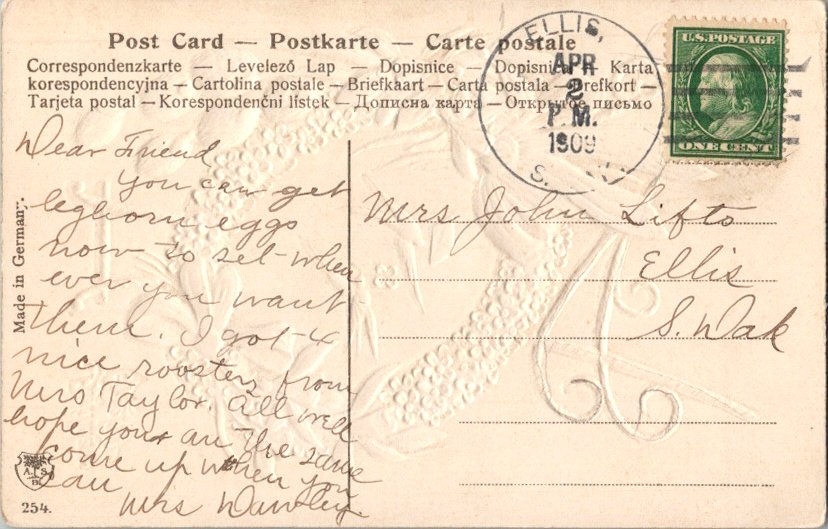 Post Card — Postkarte — Carte postale
Correspondenzkarte — Levelező Lap — Dopisnice — Dopisnica — Karta
korespondencyjna — Cartolina postale — Briefkaart — Carta postala — Brefkort —
Tarjeta postal — Korespondenční lístek — Дописна карта — Открытое письмо
ELLIS,
APR
2
P.M.
1909
S.
U.S. POSTAGE
ONE CENT
Dear Friend
you can get
leghorn eggs
now to set when
ever you want
them. I got 4
nice roosters from
Mrs Taylor. all well
hope your are the same
come up when you
can
Mrs
Mrs John Lifto
Ellis
S. Dak
Made in Germany.
254.